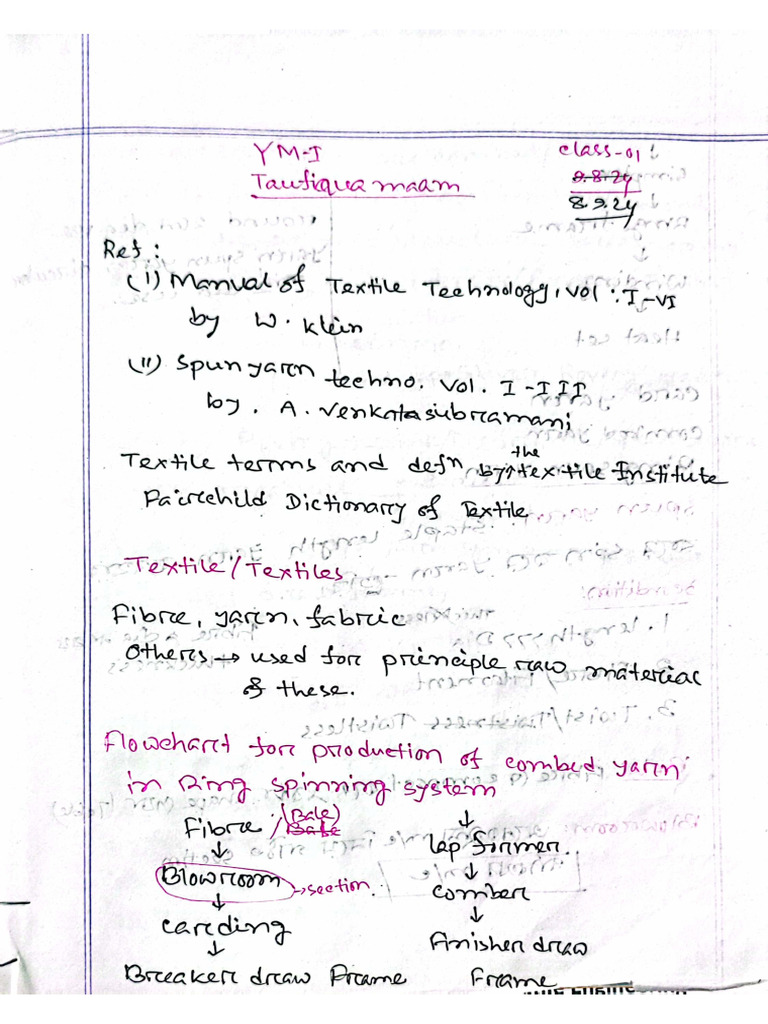 YM-I
class-01
Taufiqua maam
8.8.24
8.9.24
Ref :
(i) Manual of Textile Technology, vol : I-VI
by W. Klein
(ii) Spun yarn techno. Vol. I-III
by. A. Venkatasubramani
Textile terms and defn by the textile Institute
Fairchild Dictionary of Textile
Textile/Textiles
Fibre, yarn, fabric
Others → used for principle raw material
of these.
Flowchart for production of combed yarn
in Ring spinning system
Fibre/Bale (Bale)
↓
Blowroom → section.
↓
carding
↓
Breaker draw Frame
↓
lap former.
↓
comber
↓
Finisher draw
Frame